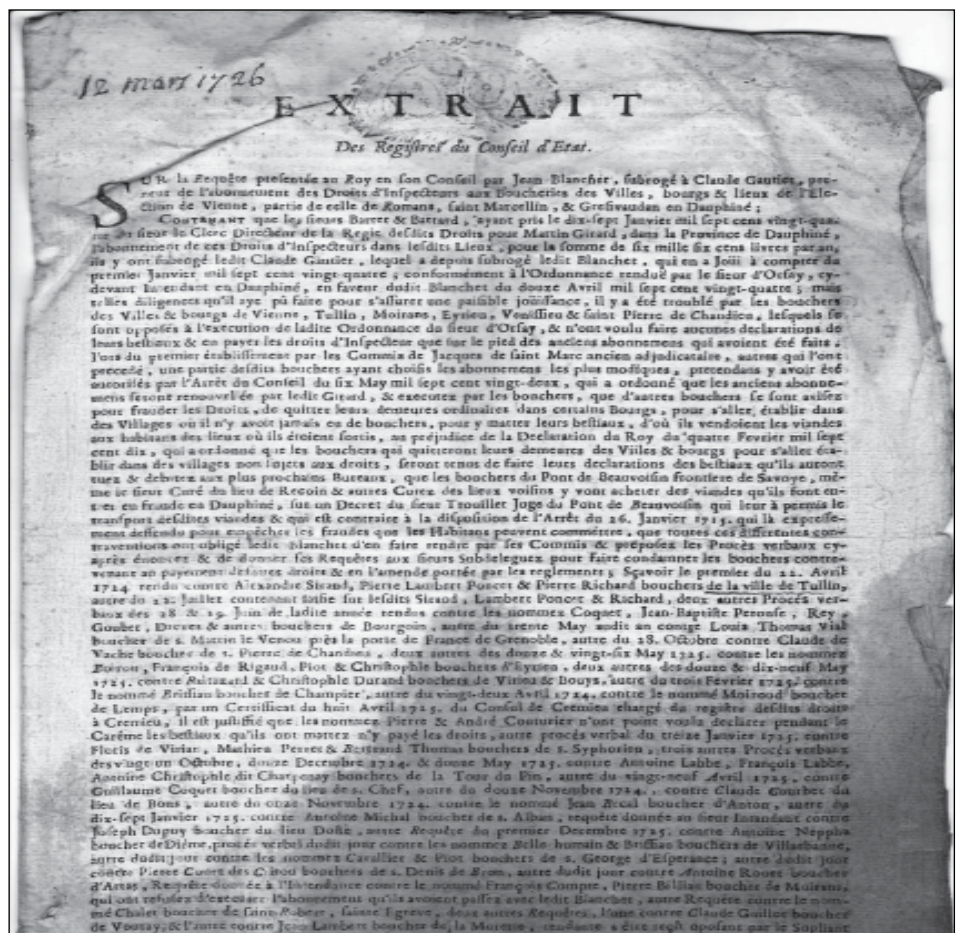 12 mars 1726
EXTRAIT
Des Registres du Conseil d'Etat.
SUR la Requête presentée au Roy en son Conseil par Jean Blanchet, subrogé à Claude Gautier, pre-
neur de l'abonnement des Droits d'Inspecteurs aux Boucheries des Villes, bourgs & lieux de l'Ele-
ction de Vienne, partie de celle de Romans, saint Marcellin, & Gresivaudan en Dauphiné ;
CONTENANT que les sieurs Barret & Battard, ayant pris le dix-sept Janvier mil sept cens vingt-qua-
tre du sieur le Clerc Directeur de la Regie desdits Droits pour Martin Girard, dans la Province de Dauphiné,
l'abonnement de ces Droits d'Inspecteurs dans lesdits Lieux, pour la somme de six mille six cens livres par an,
ils y ont subrogé ledit Claude Gautier, lequel a depuis subrogé ledit Blanchet, qui en a joüi à compter du
premier Janvier mil sept cent vingt-quatre ; conformément à l'Ordonnance renduë par le sieur d'Orsay, cy-
devant Intendant en Dauphiné, en faveur dudit Blanchet du douze Avril mil sept cent vingt-quatre ; mais
telles diligences qu'il aye pû faire pour s'assurer une paisible joüissance, il y a été troublé par les bouchers
des Villes & bourgs de Vienne, Tullin, Moirans, Eyrieu, Venissieu & saint Pierre de Chandieu, lesquels se
sont opposés à l'execution de ladite Ordonnance du sieur d'Orsay, & n'ont voulu faire aucunes declarations de
leurs bestiaux & en payer les droits d'Inspecteur que sur le pied des anciens abonnemens qui avoient été faits,
lors du premier établissement par les Commis de Jacques de saint Marc ancien adjudicataire, autres qui l'ont
precedé, une partie desdits bouchers ayant choisis les abonnemens les plus modiques, pretendans y avoir été
autorisés par l'Arrêt du Conseil du six May mil sept cent vingt-deux, qui a ordonné que les anciens abonne-
mens seront renouvelé par ledit Girard, & executez par les bouchers, que d'autres bouchers se sont avisez
pour frauder les Droits, de quitter leurs demeures ordinaires dans certains Bourgs, pour s'aller établir dans
des Villages où il n'y avoit jamais eu de bouchers, pour y mattre leurs bestiaux, d'où ils vendoient les viandes
aux habitans des lieux où ils étoient sortis, au préjudice de la Declaration du Roy du quatre Fevrier mil sept
cent dix, qui a ordonné que les bouchers qui quitteront leurs demeures des Villes & bourgs pour s'aller éta-
blir dans des villages non sujets aux droits, seront tenus de faire leurs declarations des bestiaux qu'ils auront
tuez & debitez aux plus prochains Bureaux, que les bouchers du Pont de Beauvoisin frontiere de Savoye, mê-
me le sieur Curé du lieu de Recoin & autres Curez des lieux voisins y vont acheter des viandes qu'ils font en-
trer en fraude en Dauphiné, sur un Decret du sieur Trouillet Juge du Pont de Beauvoisin qui leur à permis le
transport desdites viandes & qui est contraire à la disposition de l'Arrêt du 26. Janvier 1715. qui là expresse-
ment deffendu pour empêcher les fraudes que les Habitans peuvent commettre, que toutes ces differentes con-
traventions ont obligé ledit Blanchet d'en faire rendre par ses Commis & préposez les Procès verbaux cy-
après énoncez & de donner ses Requêtes aux sieurs Subdeleguez pour faire condamner les bouchers contre-
venans au payement desdits droits & en l'amende portée par les reglements ; Sçavoir le premier du 22. Avril
1724. rendu contre Alexandre Sicaud, Pierre Lambert Poncet & Pierre Richard bouchers de la ville de Tullin,
autre du 12. Juillet contenant saisie sur lesdits Sicaud, Lambert Poncet & Richard, deux autres Procès ver-
baux des 18 & 19. Juin de ladite année rendus contre les nommez Coquet, Jean-Baptiste Peronse, Rey
Goubet, & autres bouchers de Bourgoin, autre du trente May audit an contre Louis Thomas Vial
boucher de s. Martin le Venou près la porte de France de Grenoble, autre du 28. Octobre contre Claude de
Vache boucher de s. Pierre de Chandieu, deux autres des douze & vingt-six May 1725. contre les nommez
François de Rigaud, Piot & Christophle bouchers d'Eyrieu, deux autres des douze & dix-neuf May
1725. contre Baltazard & Christophle Durand bouchers de Virieu & Bouys, autre du trois Fevrier 1725. contre
le nommé Brissian boucher de Champier, autre du vingt-deux Avril 1724. contre le nommé Moiroud boucher
de Lemps, par un Certificat du huit Avril 1725. du Consul de Cremieu chargé du registre desdits droits
à Cremieu, il est justifié que les nommez Pierre & André Couturier n'ont point voulu declarer pendant le
Carême les bestiaux qu'ils ont mattez n'y payé les droits, autre procés verbal du treize Janvier 1725. contre
Floris de Viriat, Mathieu Perret & Bertrand Thomas bouchers de s. Syphorien, trois autres Procés verbaux
des vingt un Octobre, douze Decembre 1724. & douze May 1725. contre Antoine Labbe, François Labbe,
Antoine Christophle dit Charpenay bouchers de la Tour du Pin, autre du vingt-neuf Avril 1725. contre
Guillaume Coquet boucher du lieu de s. Chef, autre du douze Novembre 1724. contre Claude Gourbet du
lieu de Bons, autre du onze Novembre 1724. contre le nommé Jean Recal boucher d'Anton, autre du
dix-sept Janvier 1725. contre Antoine Michal boucher de s. Alban, requête donnée au sieur Intendant contre
Joseph Dupuy boucher du lieu Doste, autre Requête du premier Decembre 1725. contre Antoine Neppha
boucher de Diéme, procés verbal dudit jour contre les nommez Belle humain & Brissiau bouchers de Villarbanne,
autre dudit jour contre les nommez Cavallier & Piot bouchers de s. George d'Esperance ; autre dudit jour
contre Pierre bouchers de s. Denis de Bron, autre dudit jour contre Antoine Rouet boucher
d'Artas, Requête donnée à l'Intendance contre le nommé François Compte, Pierre Billias boucher de Moirans,
qui ont refusez d'executer l'abonnement qu'ils avoient passez avec ledit Blanchet, autre Requête contre le nom-
mé Chalet boucher de saint Robert, sainte Egreve, deux autres Requêtes, l'une contre Claude Guilloc boucher
de Vourey, & l'autre contre Jean Lambert boucher de la Murette, tendante a être reçû oposant par le Supliant